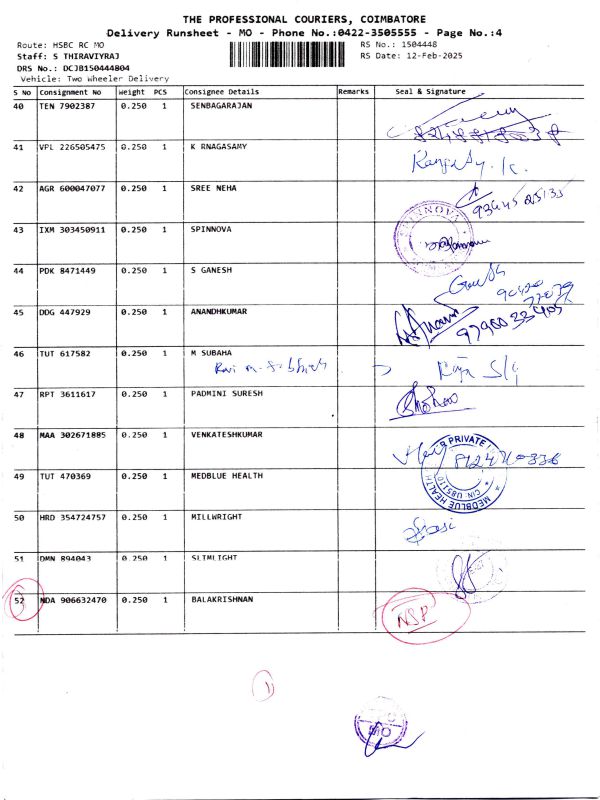 THE PROFESSIONAL COURIERS, COIMBATORE
Delivery Runsheet - MO - Phone No.:0422-3505555 - Page No.:4
Route: HSBC RC MO
RS No.: 1504448
Staff: S THIRAVIYRAJ
RS Date: 12-Feb-2025
DRS No.: DCJB150444804
Vehicle: Two Wheeler Delivery
S No Consignment No Weight PCS Consignee Details Remarks Seal & Signature
40 TEN 7902387 0.250 1 SENBAGARAJAN
41 VPL 226505475 0.250 1 K RNAGASAMY
42 AGR 600047077 0.250 1 SREE NEHA
93445 25135
43 IXM 303450911 0.250 1 SPINNOVA
SPINNOVA
44 PDK 8471449 0.250 1 S GANESH
45 DDG 447929 0.250 1 ANANDHKUMAR
97900 33405
46 TUT 617582 0.250 1 M SUBAHA
47 RPT 3611617 0.250 1 PADMINI SURESH
48 MAA 302671885 0.250 1 VENKATESHKUMAR
49 TUT 470369 0.250 1 MEDBLUE HEALTH
MEDBLUE HEALTH PRIVATE
50 HRD 354724757 0.250 1 MILLWRIGHT
51 DMN 894043 0.250 1 SLIMLIGHT
52 NDA 906632470 0.250 1 BALAKRISHNAN NSP
1
MO